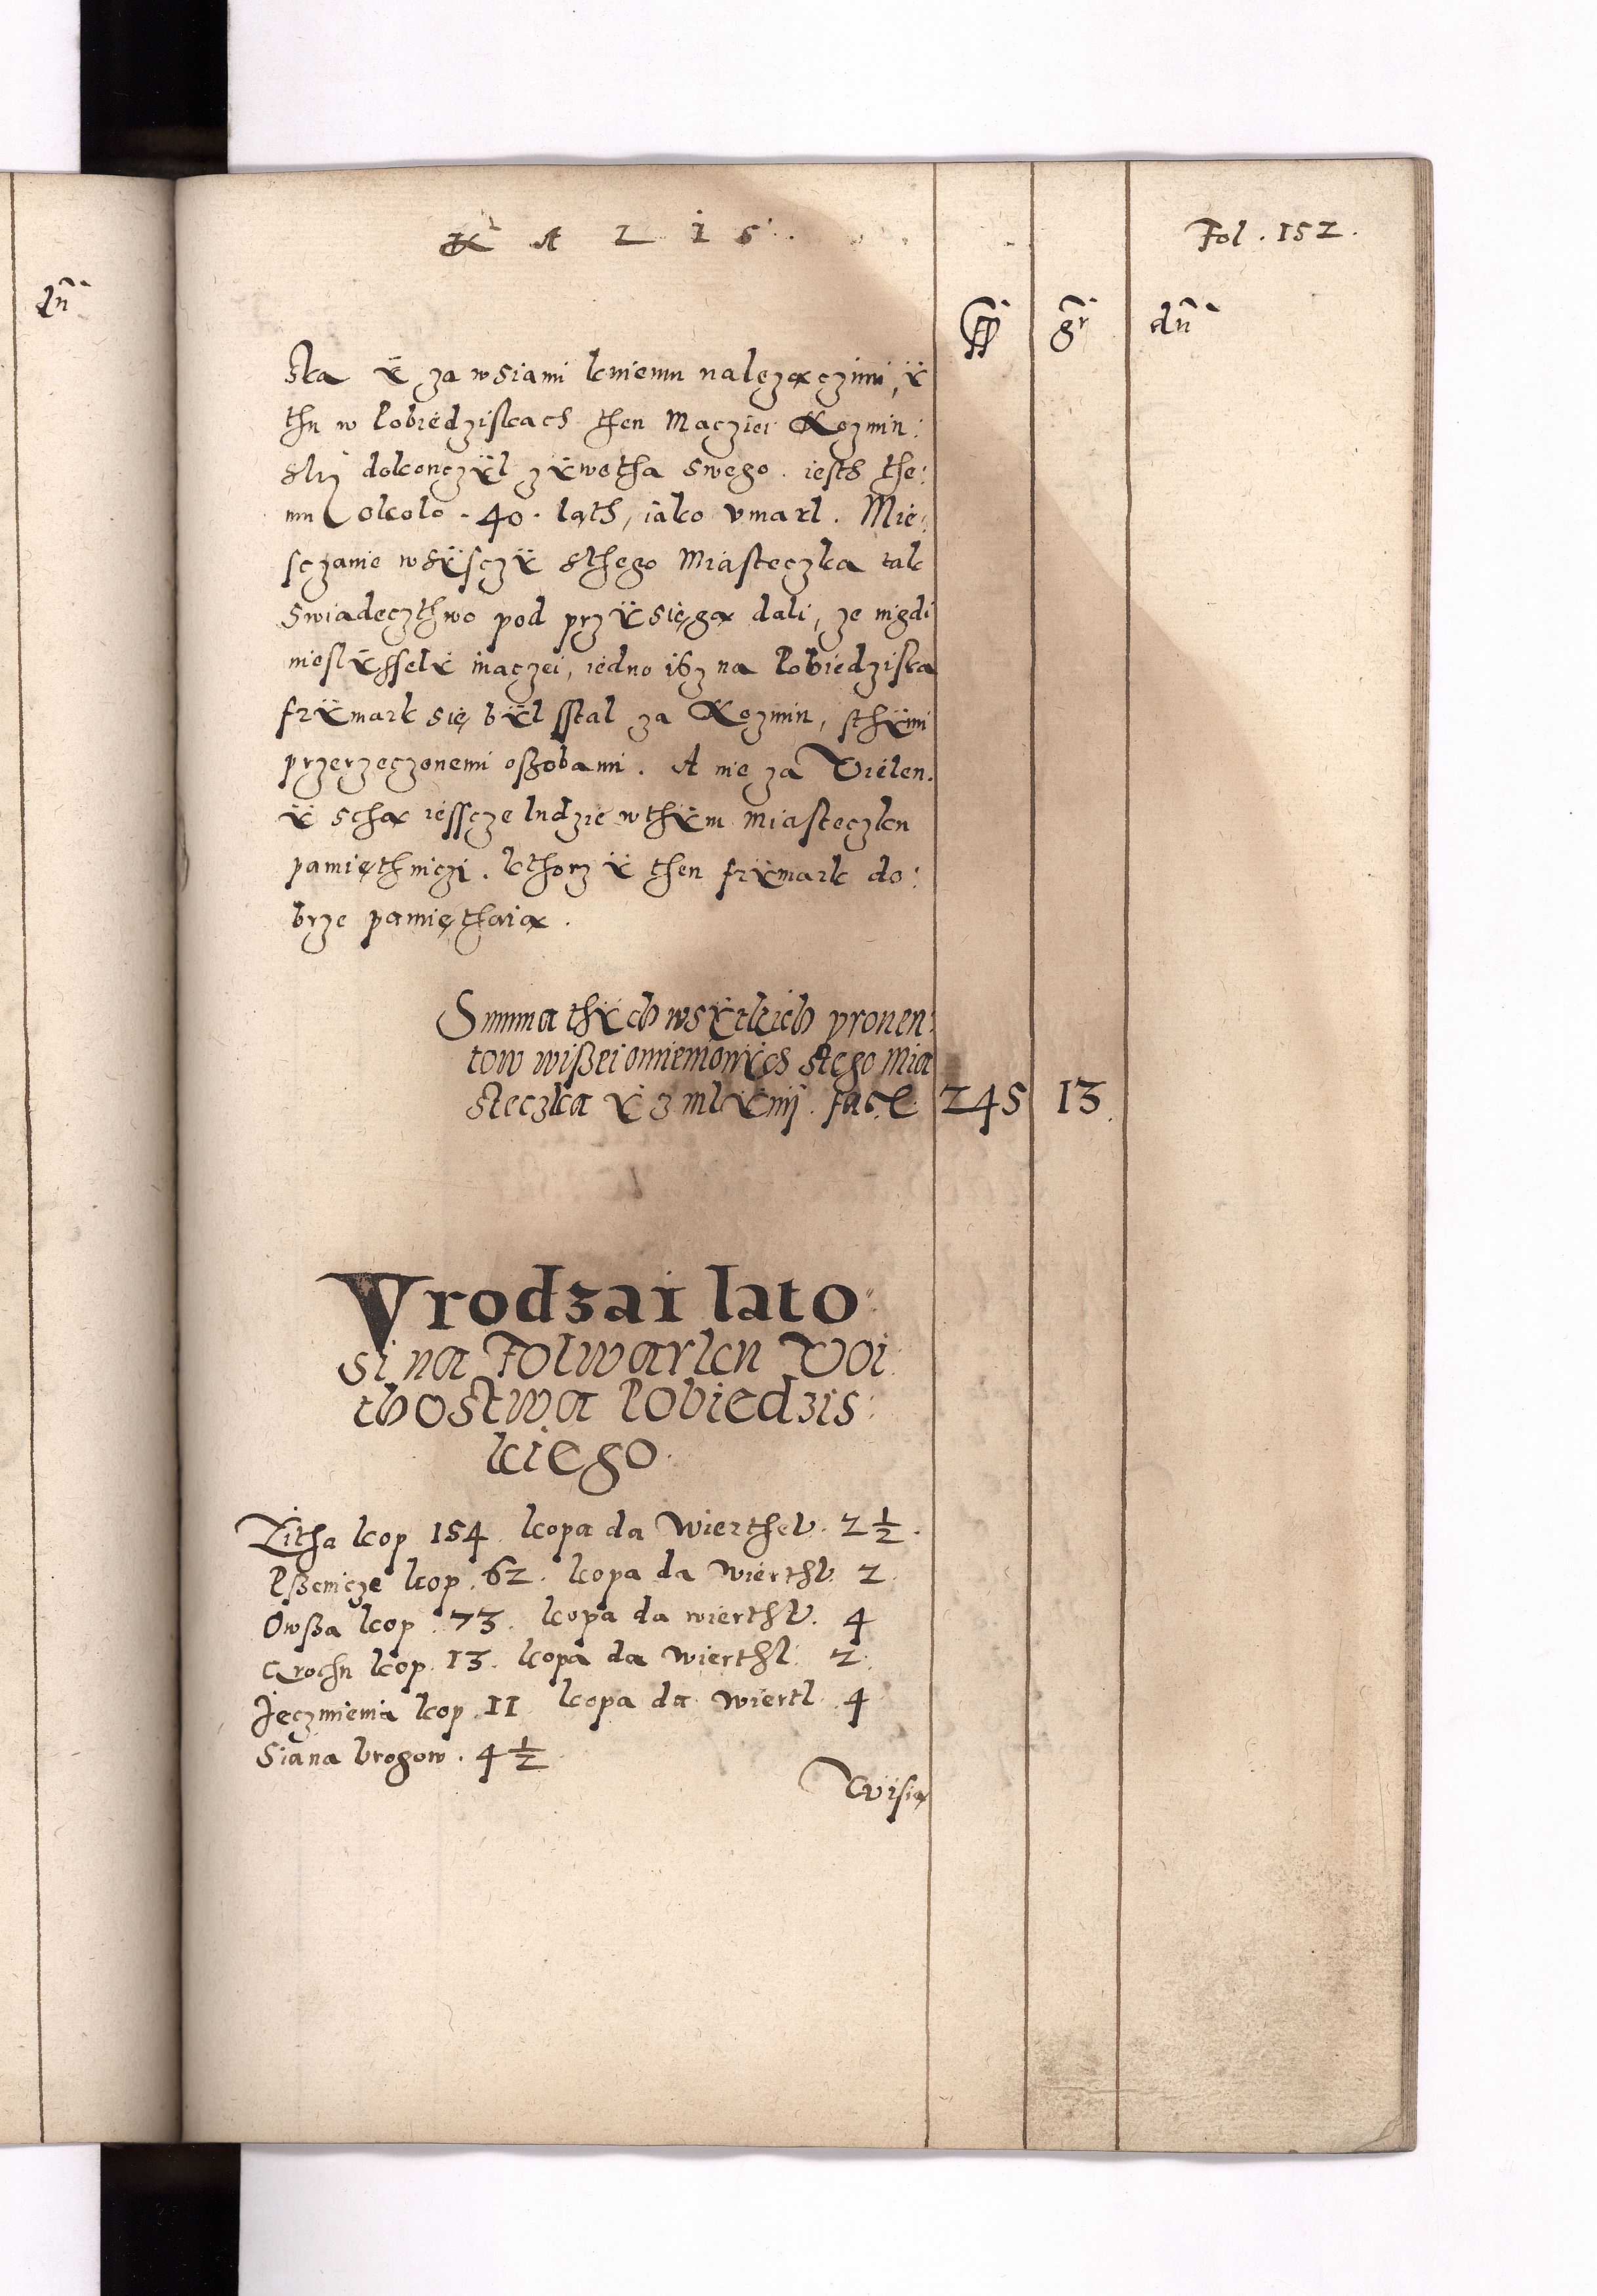 K A L I S .
Fol . 152 .
dn̄
fl gr dn̄
ska ÿ za wsiami kniemu należączimi, ÿ
thu w Pobiedziskach then Macziei Kozmin:
skÿ dokonczÿl zÿwotha swego . iesth the:
mu okolo . 40 . lath, iako vmarl . Mie:
sczanie wsÿsczÿ sthego Miasteczka tak
swiadeczthwo pod przÿsięgą dali, ze nigdi
nieslÿsselÿ inaczei, iedno isz na Pobiedziska
frÿmark się bÿl sstal za Kozmin, sthÿmi
przerzeczonemi oszobami . A nie za Vielen.
ÿ schą iesscze ludzie wthÿm miasteczku
pamięthniczi . kthorzÿ then frÿmark do:
brze pamięthaią .
Summa thÿch wsÿtkich prouen:
tow wiszei omiemonÿch stego mia
steczka ÿ z mlÿnÿ . facit 245 13
Vrodzai lato
si na Folwarku Voi
thostwa Pobiedzis:
kiego
Zitha kop 154 kopa da Wierthel . 2 1/2 .
Pszenicze kop . 62 . kopa da wierthl 2
Owsza kop . 73 . kopa da wierthl . 4
Grochu kop . 13 . kopa da wierthl . 2 .
Jęczmienia kop . 11 kopa da wiertl . 4
Siana brogow . 4 1/2
Wisią